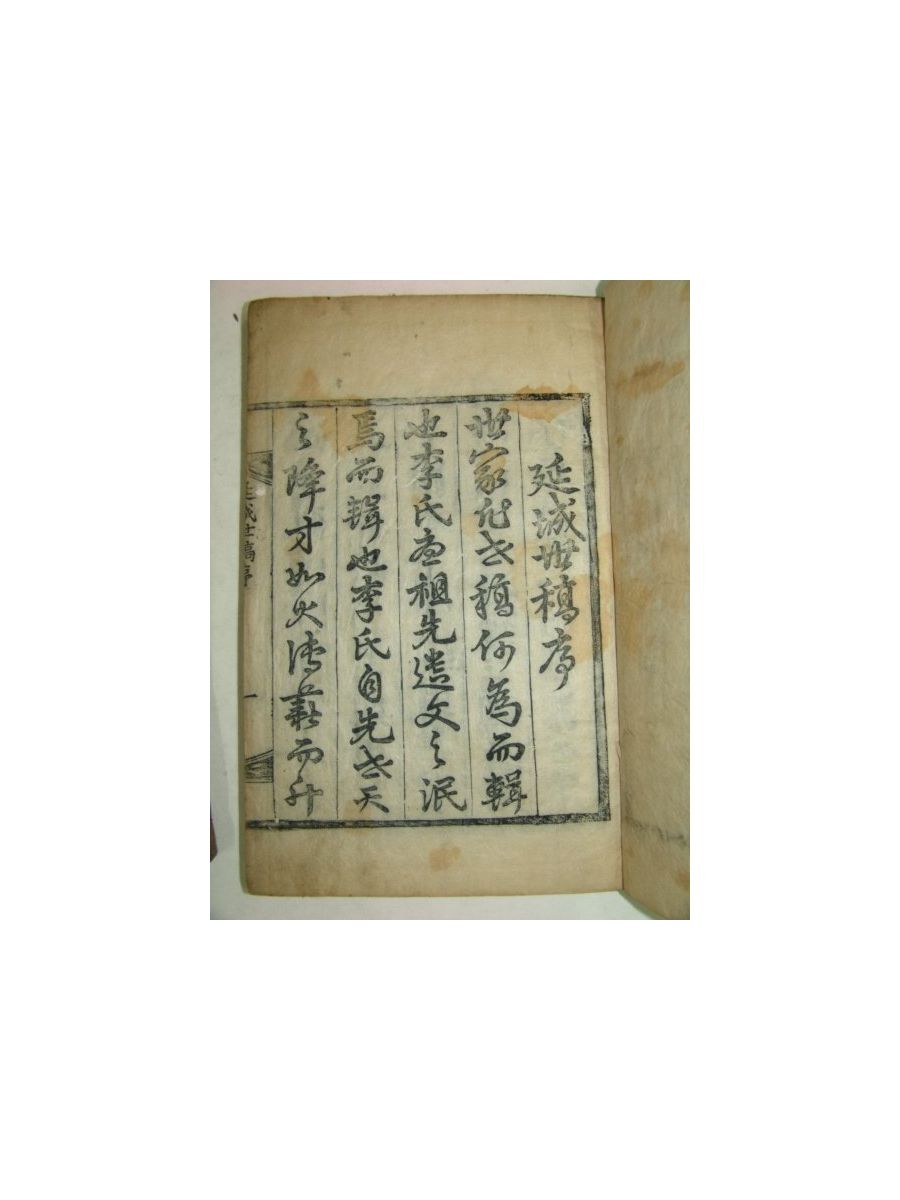 延城世稿序
世家之世稿何為而輯
也李氏為祖先遺文之泯
焉而輯也李氏自先世天
之降才如火傳薪而升
延城世稿序
一